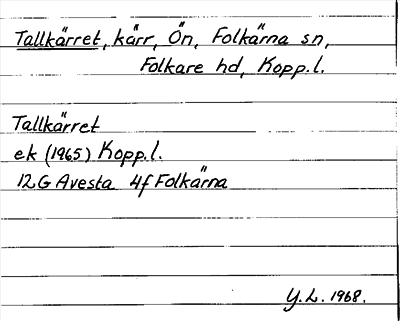 Tallkärret, kärr, Ön, Folkärna sn,
Folkare hd, Kopp.l.
Tallkärret
ek (1965) Kopp.l.
12G Avesta 4f Folkärna
Y.L. 1968.